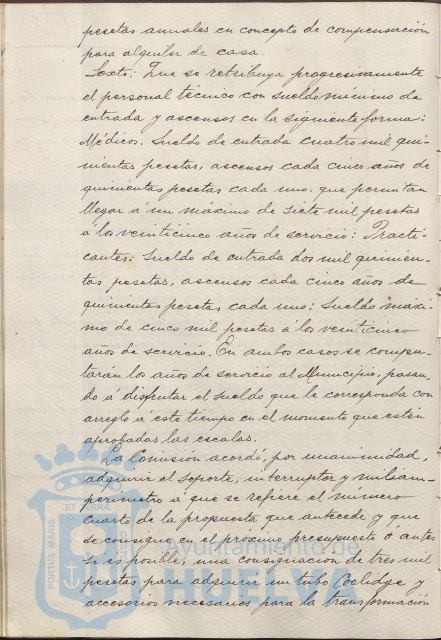 pesetas anuales en concepto de compensación
para alquiler de casa.
Sexto: Que se retribuya progresivamente
el personal técnico con sueldo mínimo de
entrada y ascensos en la siguiente forma:
Médicos. Sueldo de entrada cuatro mil qui-
nientas pesetas, ascensos cada cinco años de
quinientas pesetas cada uno, que permitan
llegar á un máximo de siete mil pesetas
á los veinticinco años de servicio: Practi-
cantes: Sueldo de entrada dos mil quinien-
tas pesetas, ascensos cada cinco años de
quinientas pesetas cada uno; Sueldo máxi-
mo de cinco mil pesetas á los veinticinco
años de servicio. En ambos casos se compu-
tarán los años de servicio al Municipio, pasan-
do á disfrutar el sueldo que le corresponda con
arreglo á este tiempo en el momento que estén
aprobadas las escalas.
La Comisión acordó, por unanimidad,
adquirir el soporte, interruptor y miliam-
perímetro á que se refiere el número
cuarto de la propuesta que antecede y que
se consigne en el próximo presupuesto ó antes
si es posible, una consignación de tres mil
pesetas para adquirir un tubo Coolidge y
accesorios necesarios para la transformación
PORTUS MARIS
ET TERRA
Ayuntamiento de
HUELVA